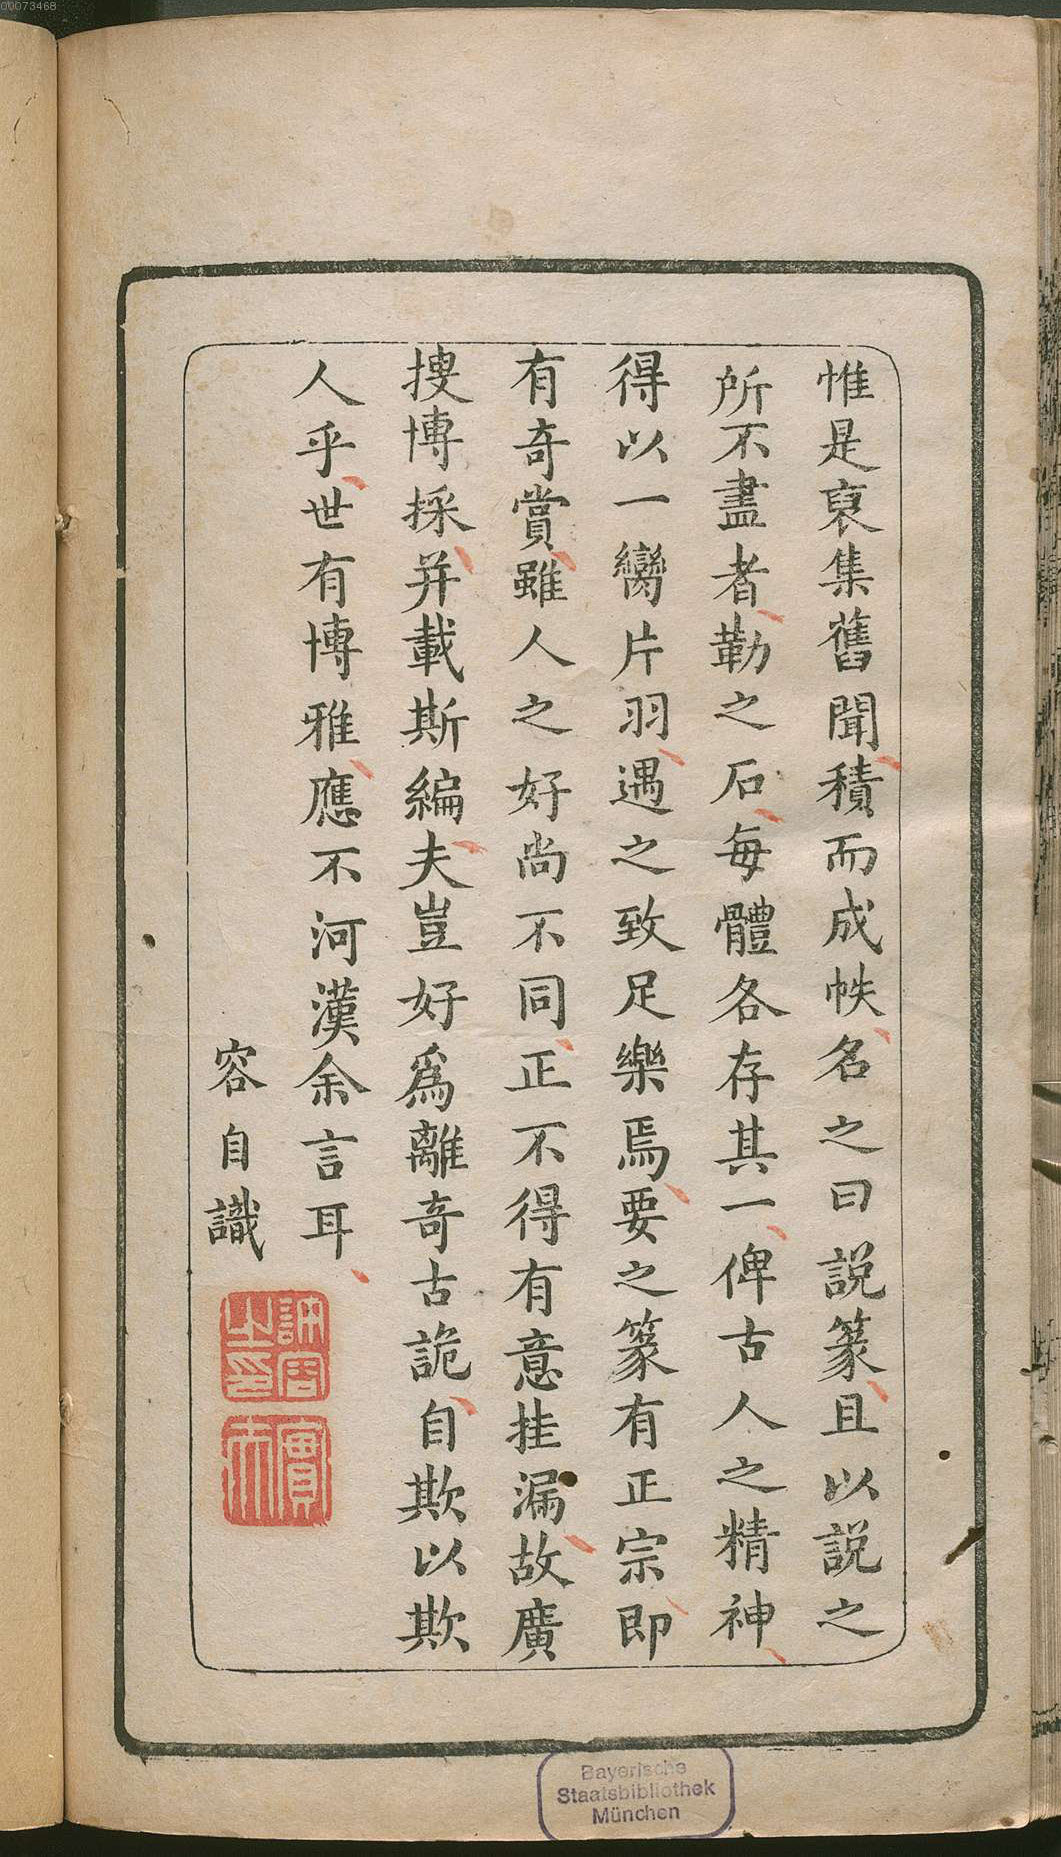 00073468
惟是裒集舊聞積而成帙名之曰説篆且以説之
所不盡者勒之石每體各存其一俾古人之精神
得以一臠片羽遇之致足樂焉要之篆有正宗即
有奇賞雖人之好尚不同正不得有意挂漏故廣
搜博採并載斯編夫豈好爲離奇古詭自欺以欺
人乎世有博雅應不河漢余言耳
容自識
Bayerische
Staatsbibliothek
München